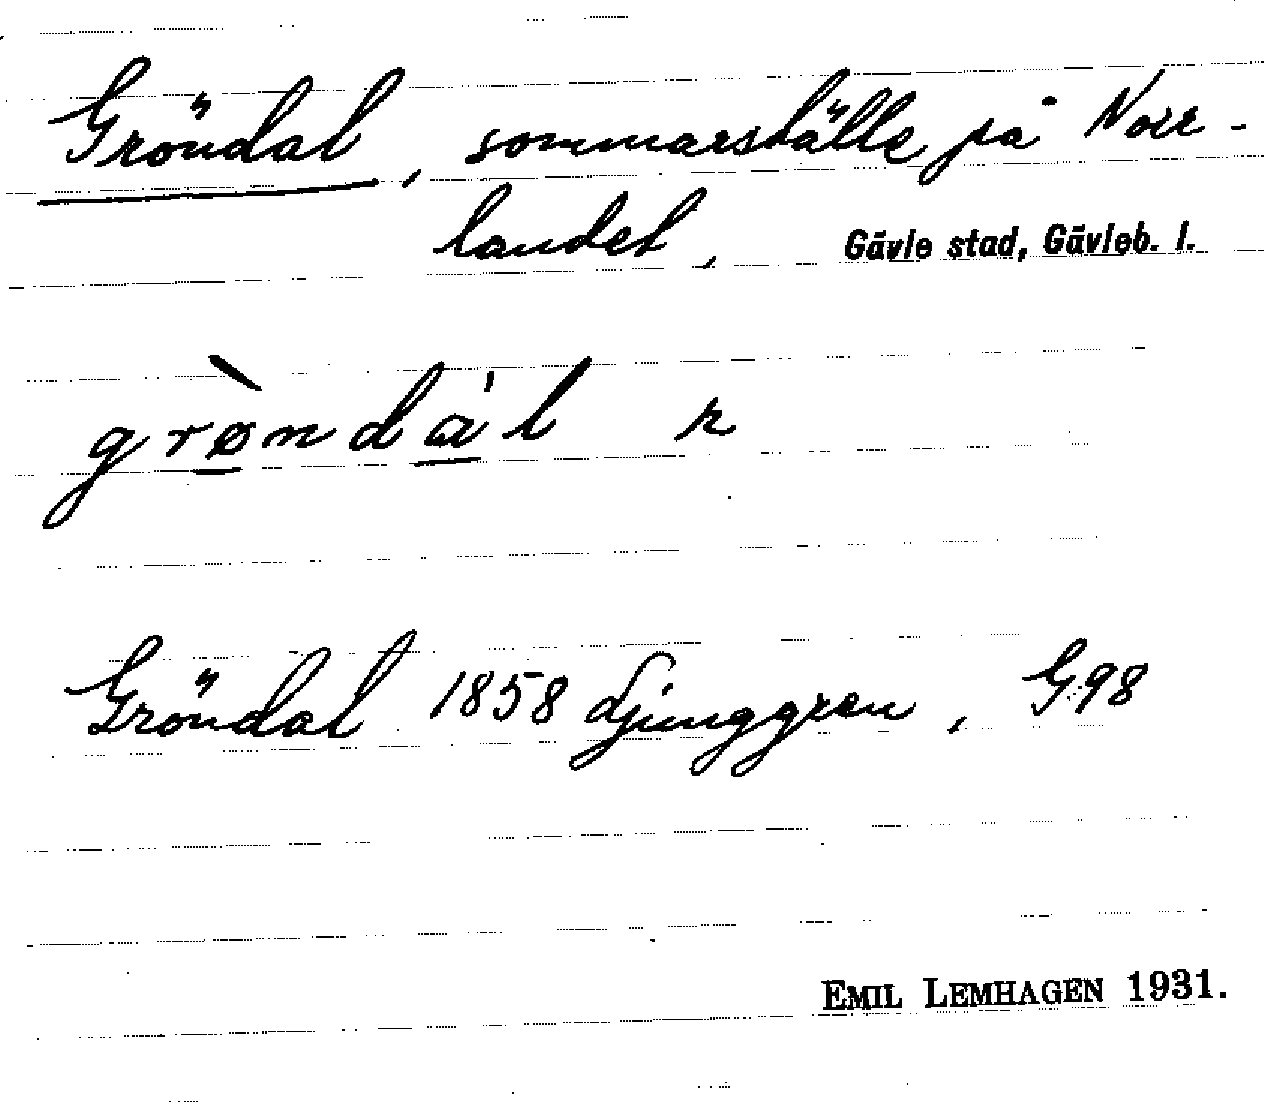 Gröndal, sommarställe på Norr-
landet, Gävle stad, Gävleb. l.
grø̀ndá̱l r
Gröndal 1858 Ljunggren, G98
EMIL LEMHAGEN 1931.